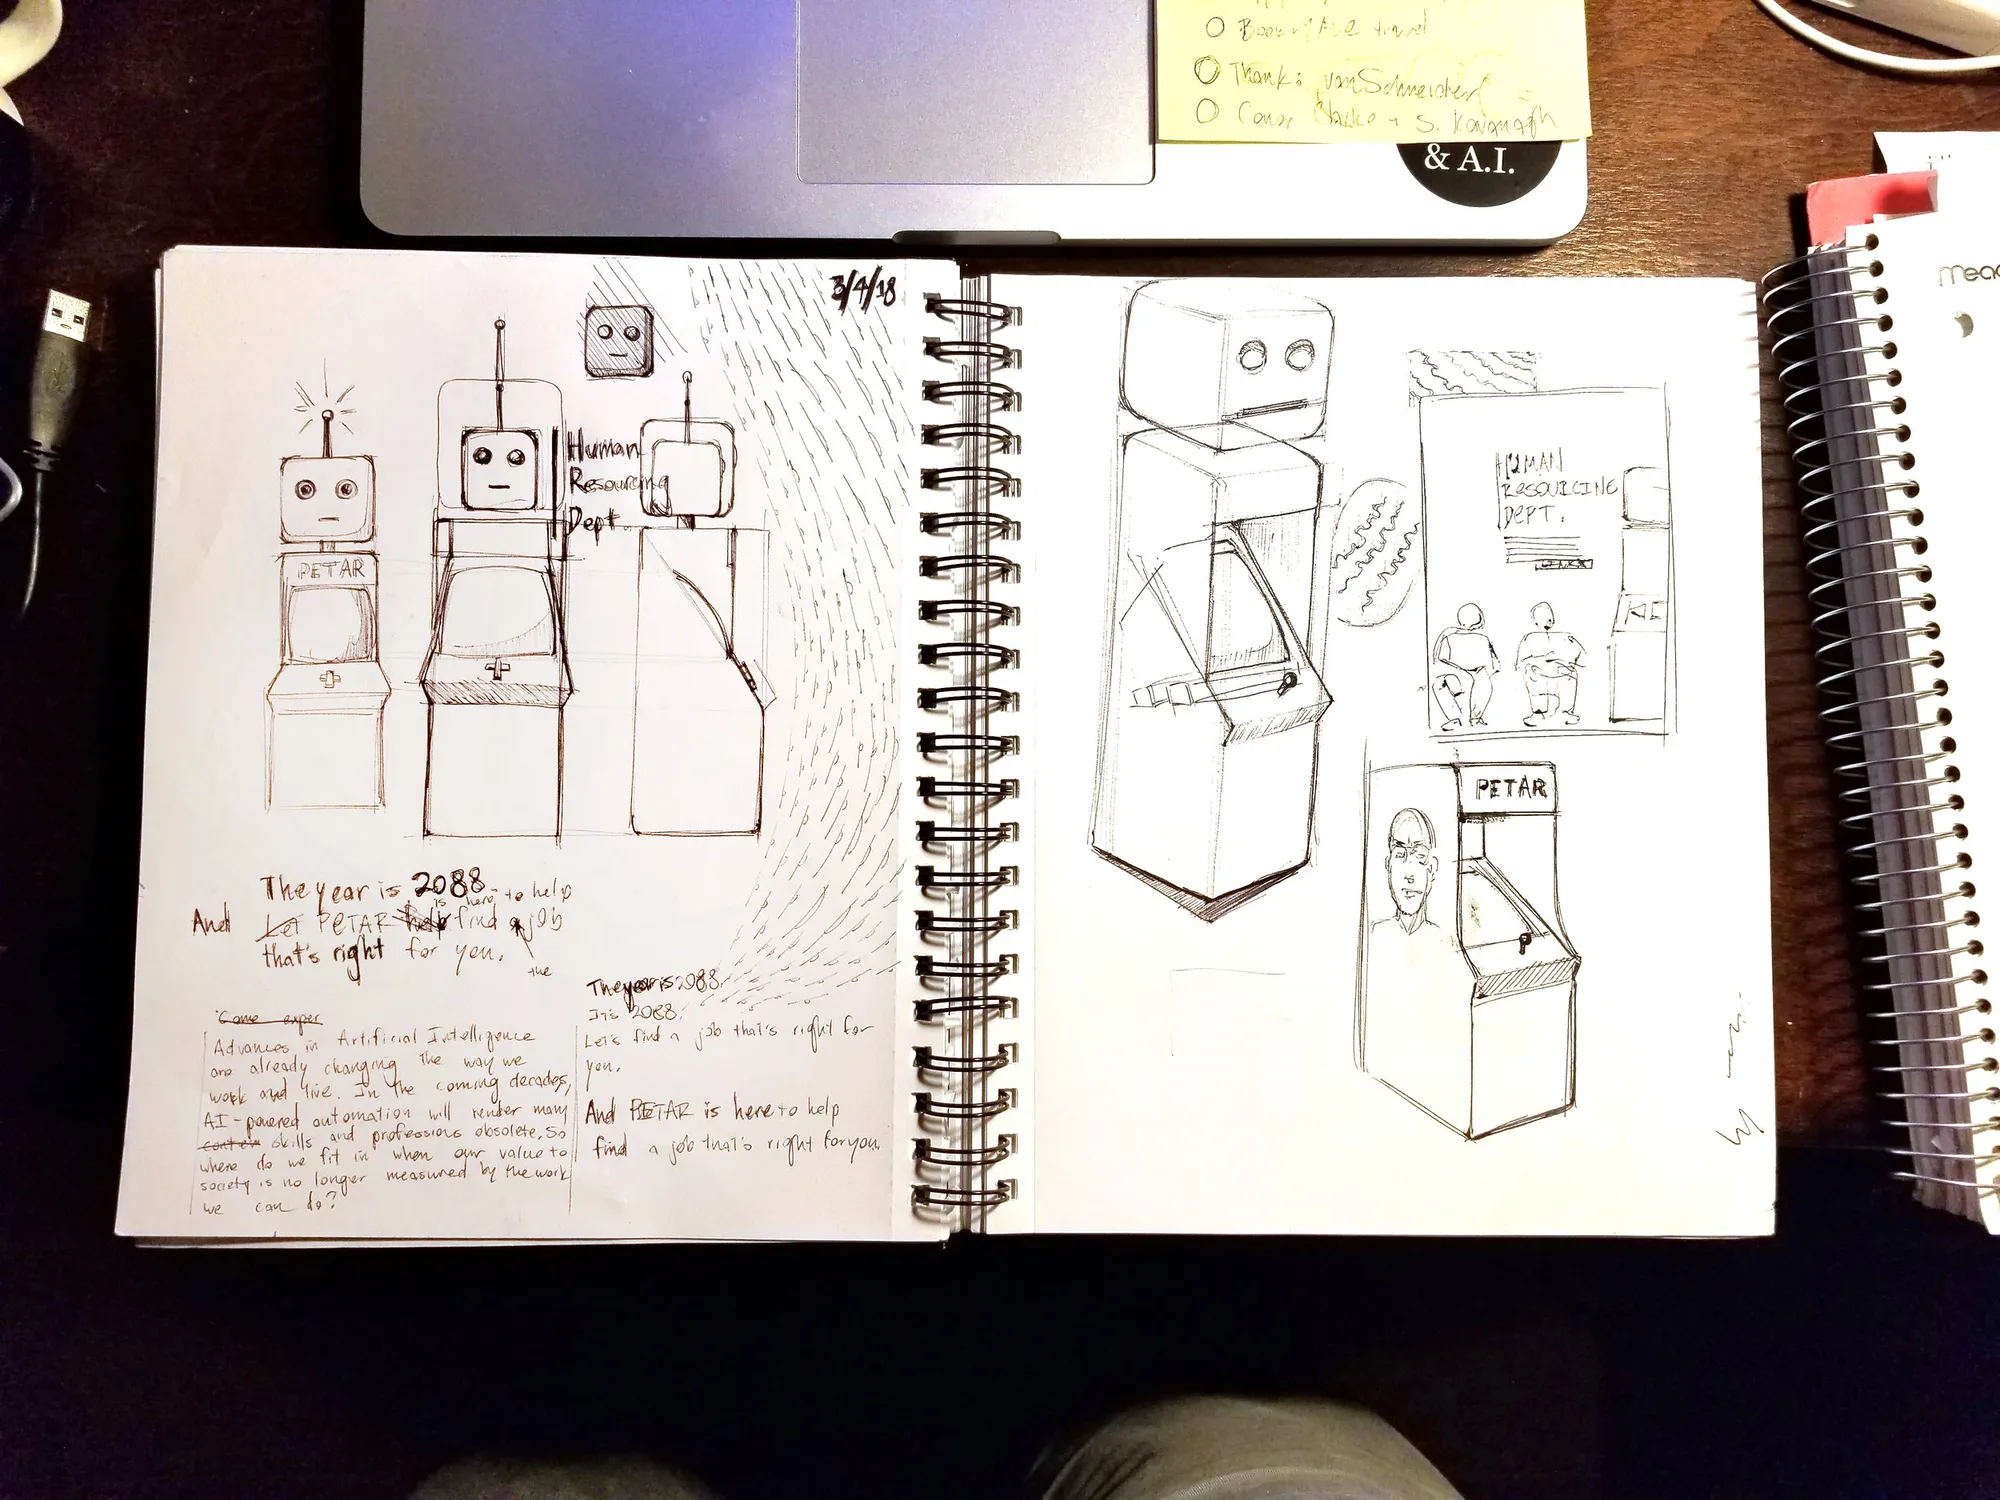 Book of travel
Thank: vanSchneider
Conor Clarke + S. Kavanagh
& A.I.
Mead
3/4/18
Human
Resourcing
Dept.
PETAR
The year is 2088.
is here to help
And Let PETAR help find a job
that's right for you.
the
Come exper
Advances in Artificial Intelligence
are already changing the way we
work and live. In the coming decades,
AI-powered automation will render many
skills and professions obsolete. So
where do we fit in when our value to
society is no longer measured by the work
we can do?
The year is 2088.
It's 2088.
Let's find a job that's right for
you.
And PETAR is here to help
find a job that's right for you.
HUMAN
RESOURCING
DEPT.
PETAR